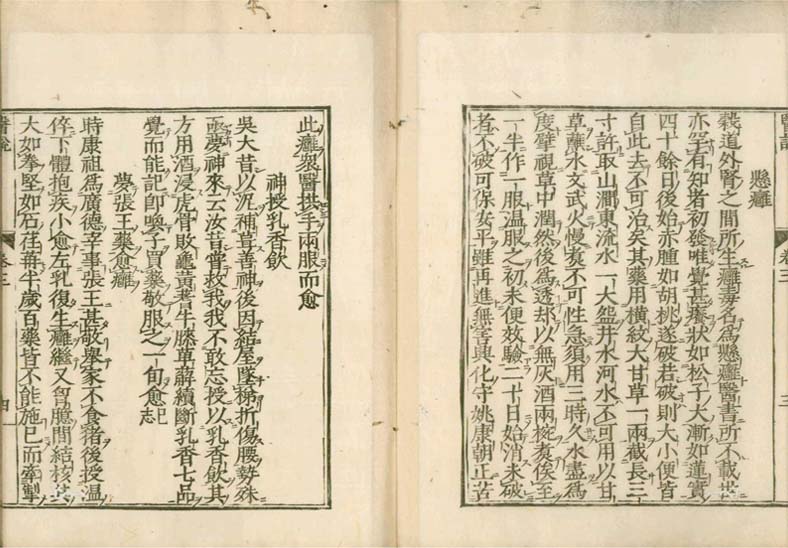 醫說
卷三
三
懸癰
穀道外腎之間所生癰毒名爲懸癰醫書所不載世
亦罕有知者初發唯覺甚癢狀如松子大漸如蓮實
四十餘日後始赤腫如胡桃遂破若破則大小便皆
自此去不可治矣其藥用橫紋大甘草一兩截長三
寸許取山澗東流水一大盌井水河水不可用以甘
草蘸水文武火慢炙不可性急須用三時久水盡爲
度擘視草中潤然後爲透却以無灰酒兩椀煮俟至
一半作一服溫服之初未便效驗二十日始消未破
者不破可保安平雖再進無害興化守姚康朝正苦
此癰衆醫拱手兩服而愈
神授乳香飲
吳大昔以泥補葺善神後因緝屋墜梯折傷腰勢殊
亟夢神來云汝昔嘗救我我不敢忘授以乳香飲其
方用酒浸虎骨敗龜黃耆牛膝萆薢續斷乳香七品
覺而能記卽喚子買藥敬服之一旬愈 已志
夢張王藥愈癰
時康祖爲廣德宰事張王甚敬舉家不食猪後授溫
倅下體抱疾小愈左乳復生癰繼又胷臆間結核其
大如拳堅如石荏苒半歲百藥皆不能施已而牽掣
醫說
卷三
四